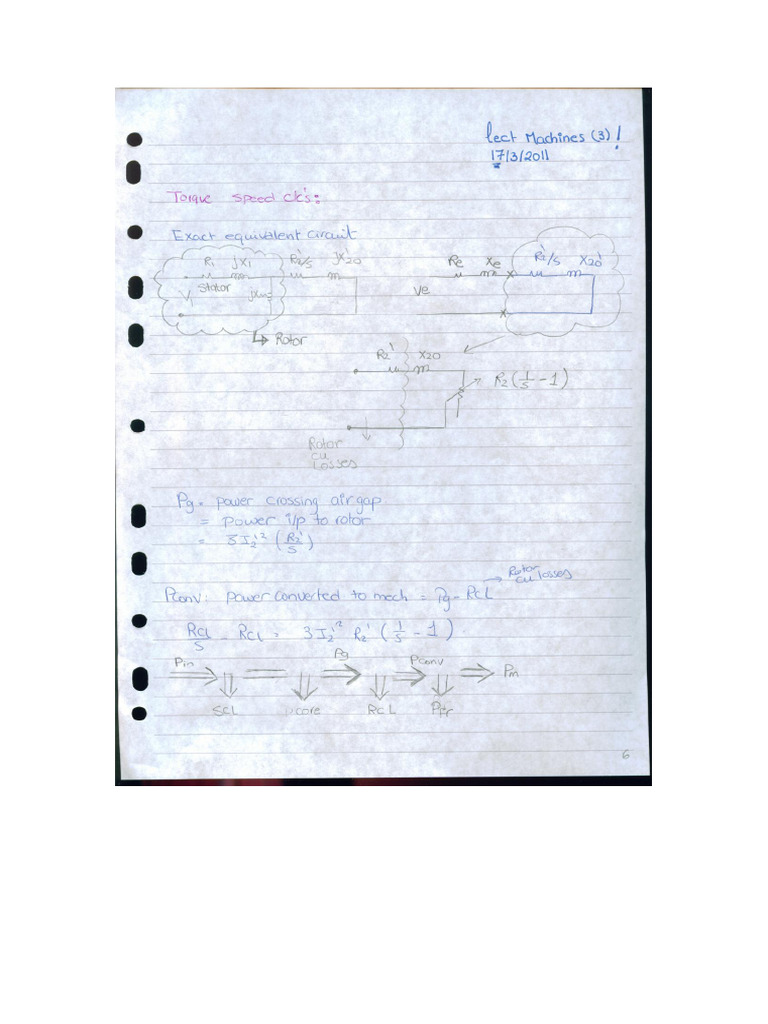 lect Machines (3) !
17/3/2011
Torque speed ck's:
Exact equivalent circuit
R1 jX1 R2'/s jX20'
Stator
V1 jXm
Rotor
Re Xe R2'/s X20'
Ve
R2' X20
R2 (1/s - 1)
Rotor
cu
Losses
Pg = power crossing air gap
= power i/p to rotor
= 3I2'² (R2'/s)
Rotor
cu losses
Pconv: power converted to mech = Pg - RCL
RCL/s - RCL = 3I2'² R2' (1/s - 1)
Pin Pg Pconv Pm
SCL Pcore RCL
6